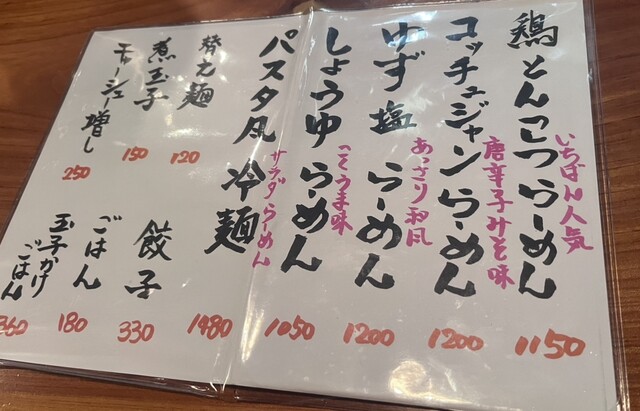 鶏とんこつらーめん
いちばん人気
1150
コッチュジャンらーめん
唐辛子みそ味
1200
ゆず塩らーめん
あっさり和風
1200
しょうゆらーめん
こくうま味
1050
パスタ風冷麺
サラダらーめん
1480
替え麺
120
煮玉子
150
チャーシュー増し
250
餃子
330
ごはん
180
玉子かけごはん
360